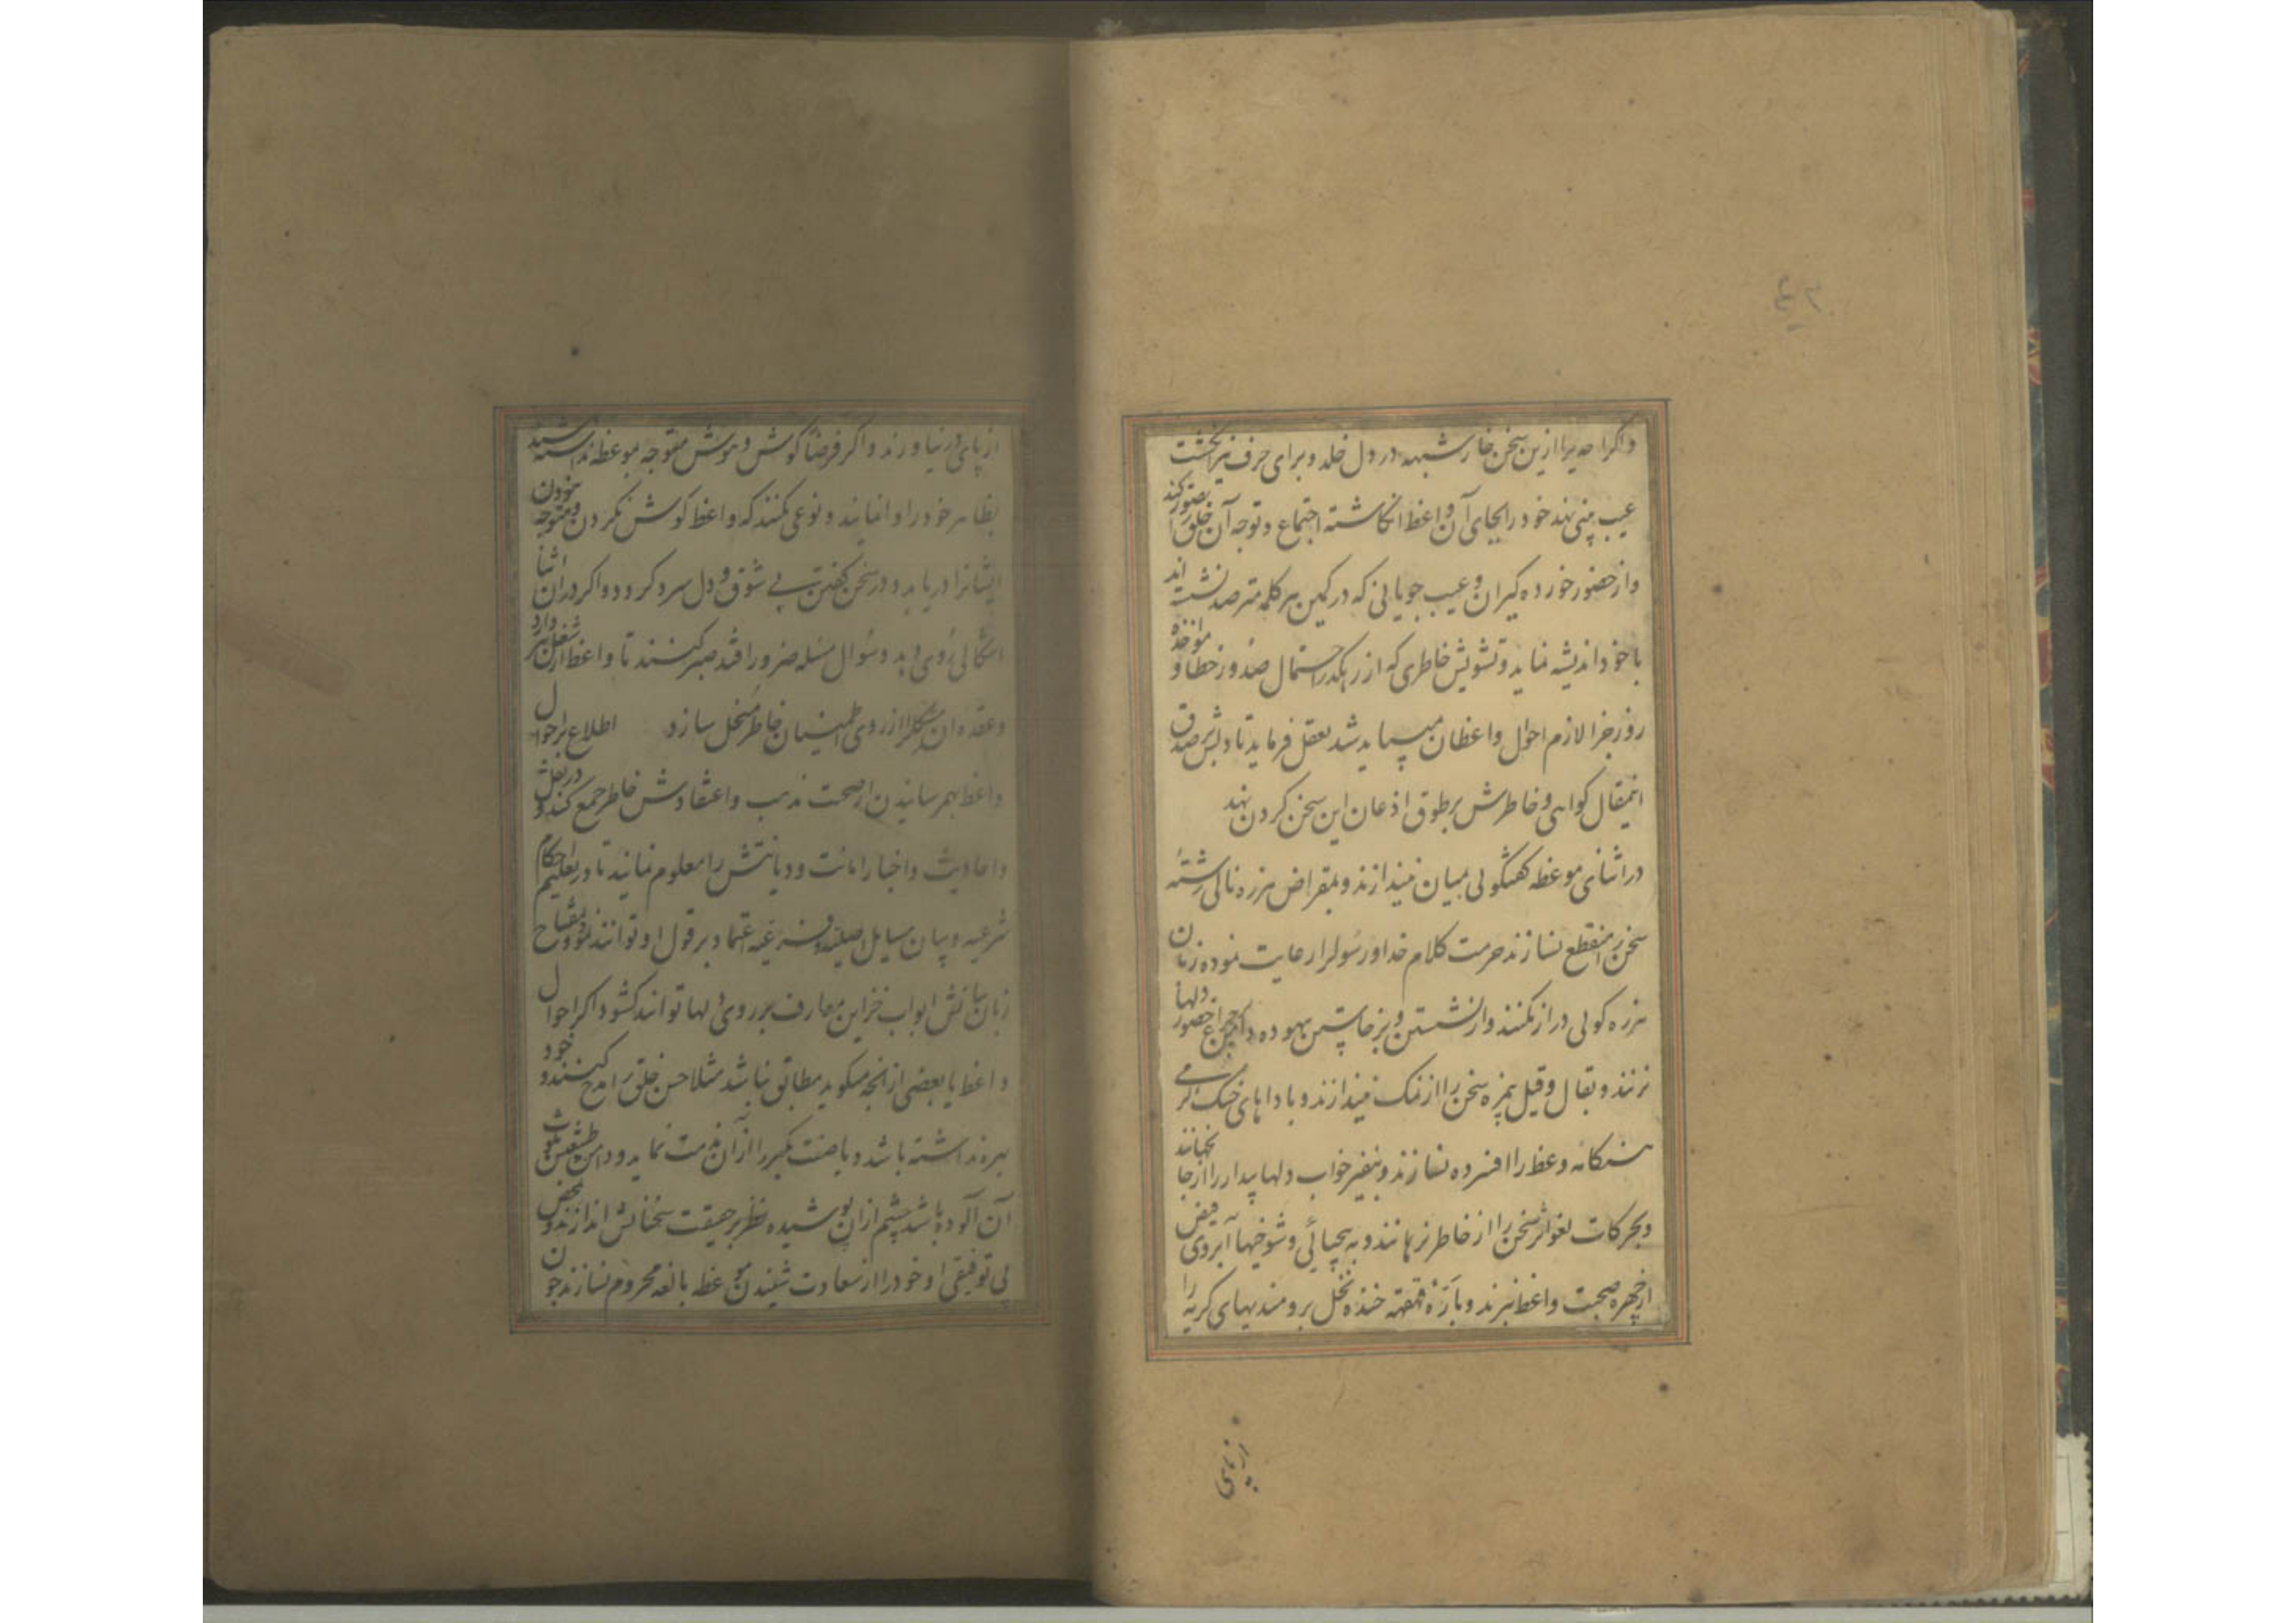 واکر احدیرا ازین سخن خار شبهه در دل خلد و برای حرف نیز انکشت
عیب بینی نهد خود را بجای آن واعظ انکاشته اجتماع و توجه آن خلق را تصور کند
و از حضور خورده کیران و عیب جویانی که در کمین هر کلمه مترصد نشسته اند
با خود اندیشه نماید و تشویش خاطری که از رهکذر احتمال صدور خطا و مؤاخذه
روز جزا لازم احوال واعظان میباید شد تعقل فرماید تا دلش بر صدق
اینمقال کواهی و خاطرش بر طوق اذعان این سخن کردن نهد
در اثنای موعظه کفتکولی بمیان نیندازند و بمقراض هرزه نالی رشتهٔ
سخن را منقطع نسازند حرمت کلام خدا و رسولرا رعایت نموده زبان
هرزه کولی دراز نکنند و از نشستن و برخاستن بیهوده دامن بر چراغ حضور دلها
نزنند و بقال و قیل بمزه سخن را از نمک نیندازند و با داهای خنک کرمی
هنکامه وعظ را افسرده نسازند و بنفیر خواب دلهای بیدار را از جا نجهانند
و بحرکات لغو اثر سخن را از خاطر نرمانند و به بیحیائی و شوخیها آبروی فیض
از چهره صحبت واعظ نبرند و باَرّهٔ قهقهه خنده نخل برومندیهای کریه را
پرنمی
از پای در نیاورند و اکر فرضا کوش و هوش متوجه موعظه نداشته باشند
بظاهر خود را وانمایند و نوعی نکنند که واعظ کوش نکردن و متوجه نبودن
ایشانرا دریابد و در سخن کفتن بی شوق و دل سرد کردد و اکر در ان اثنا
اشکالی روی دهد و سؤال مسٔله ضرور افتد صبر کنند تا واعظ از ان شغل سر دارد
و عقده ان مشکلرا از روی اطمینان خاطر منحل سازد اطلاع بر احوال
واعظ بهمرسانیدن از صحت مذهب و اعتقادش خاطر جمع کنند و در نقل
و احادیث و اخبار امانت و دیانتش را معلوم نمایند تا در تعلیم احکام
شرعیه و بیان مسایل اصلیه و فرعیه اعتماد بر قول او توانند نمود و بمفتاح
زبان بیانش ابواب خزاین معارف بر روی دلها توانند کشود اکر احوال
واعظ با بعضی از انچه میکوید مطابق نباشد مثلا حسن خلق را مدح کند و خود
بهره نداشته باشد و یا صفت تکبر را از آن مذمت نماید و دامن طینتش بلوث
آن آلوده باشد چشم از ان پوشیده نظر بر حقیقت سخنانش اندازند و بمحض
بی توفیقی او خود را از سعادت شنیدن موعظه بالغه محروم نسازند چون